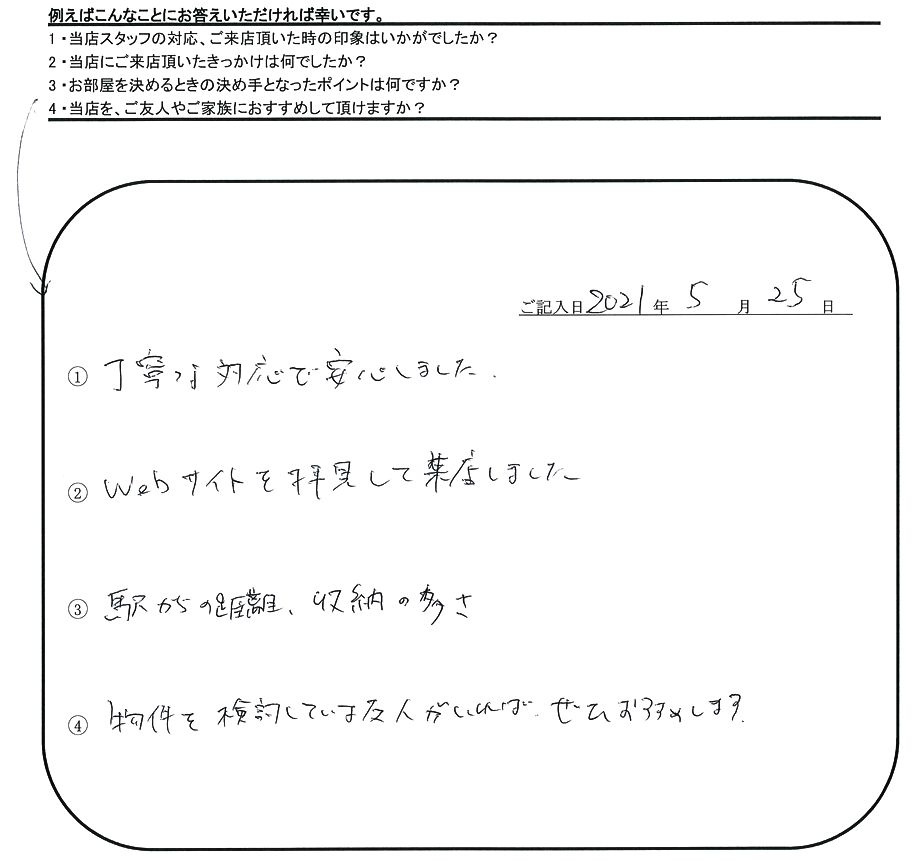 例えばこんなことにお答えいただければ幸いです。
1・当店スタッフの対応、ご来店頂いた時の印象はいかがでしたか?
2・当店にご来店頂いたきっかけは何でしたか?
3・お部屋を決めるときの決め手となったポイントは何ですか?
4・当店を、ご友人やご家族におすすめして頂けますか?
ご記入日2021年 5 月 25 日
① 丁寧な対応で安心しました.
② Webサイトを拝見して来店しました
③ 駅からの距離、収納の多さ
④ 物件を検討している友人がいれば、ぜひおすすめします.